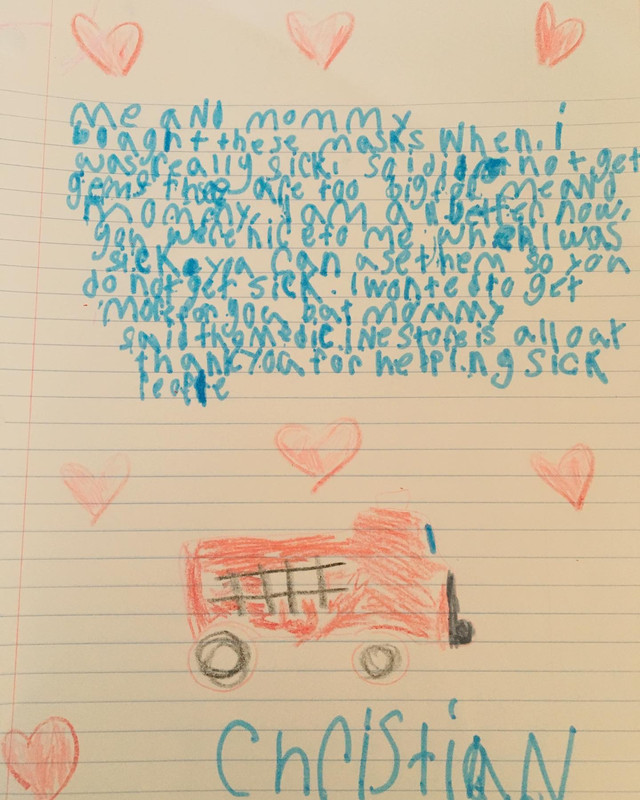 me and mommy
boaght these masks when i
was really sick. so i did not get
germs they are too big for me and
mommy. I am all better now.
you were nice to me when I was
sick. you can use them so you
do not get sick. I wanted to get
more for you but mommy
said the medicine store is all out
thank you for helping sick
people
Christian